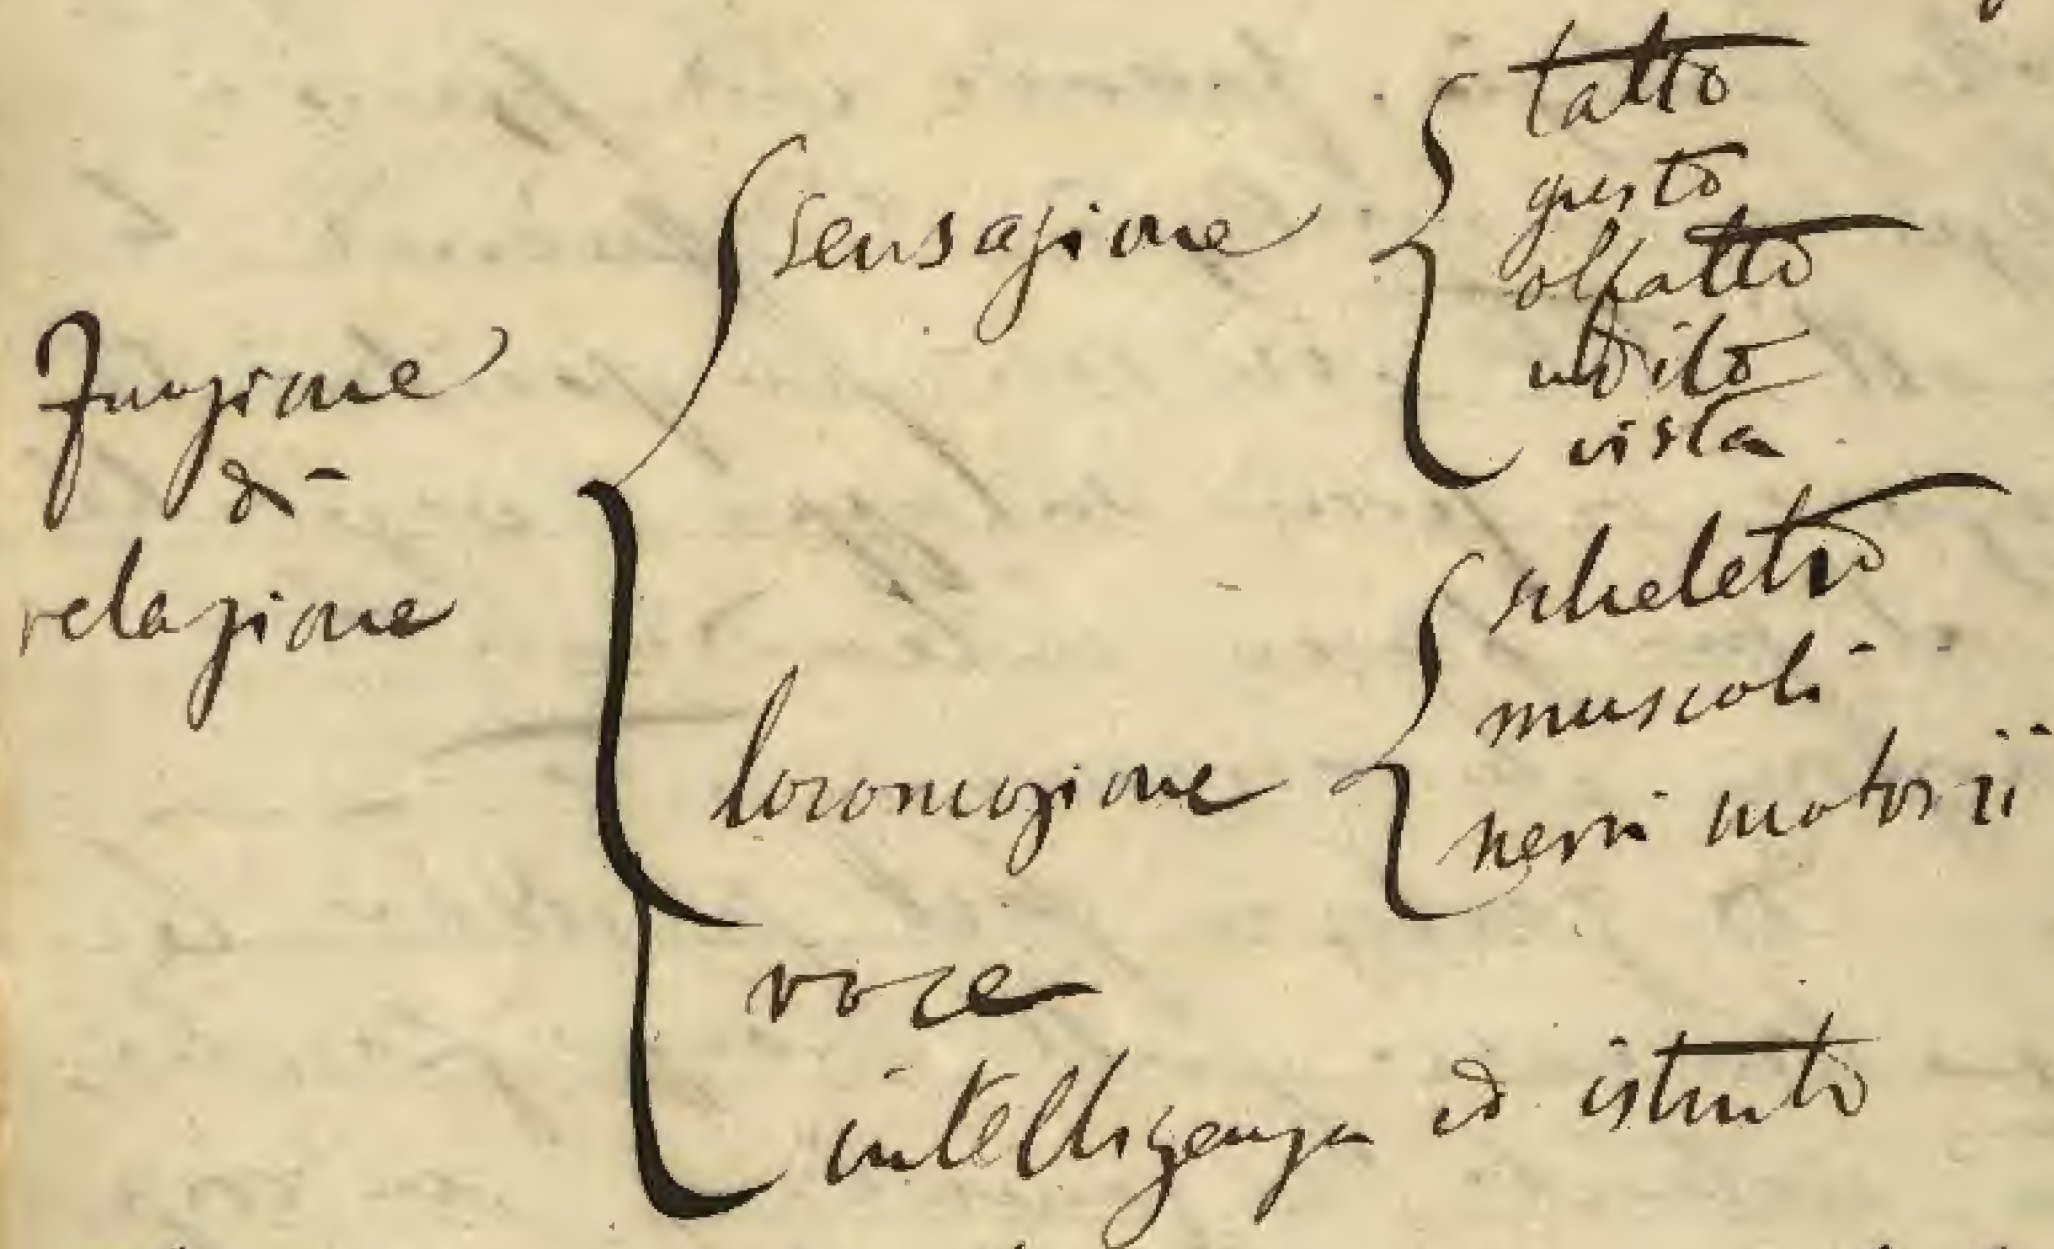 Funzione
di
relazione
sensazione
tatto
gusto
olfatto
udito
vista
locomozione
scheletro
muscoli
nervi motorii
voce
intelligenza ed istinto